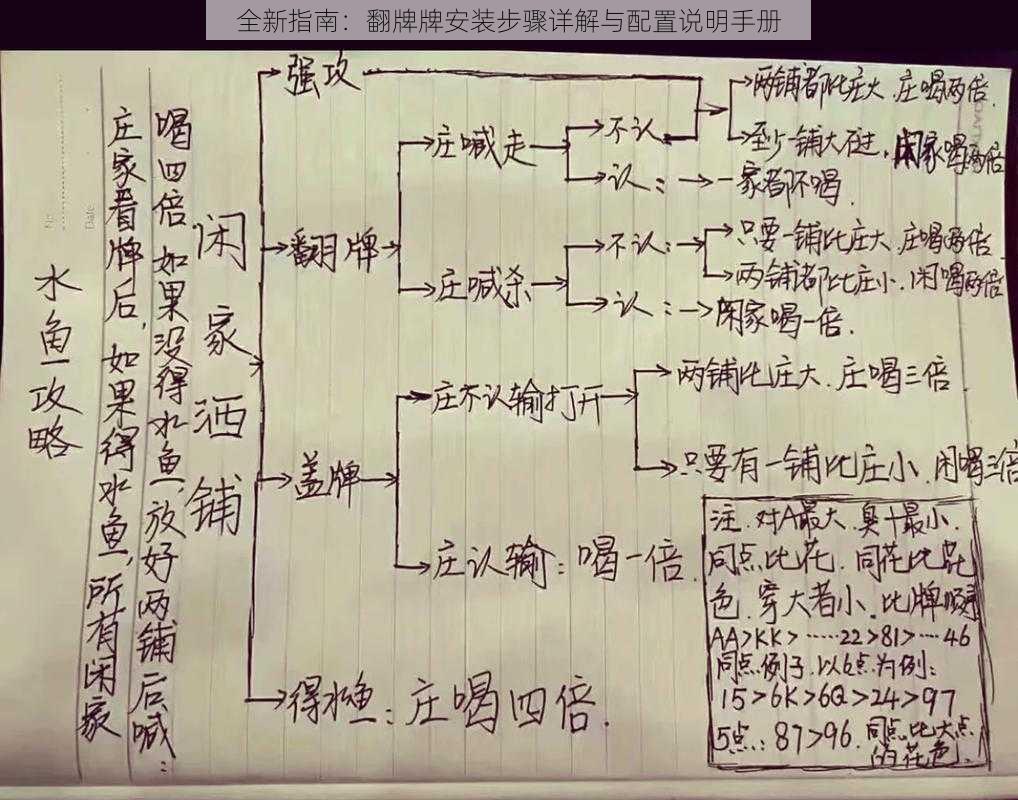 全新指南：翻牌牌安装步骤详解与配置说明手册
水鱼攻略
庄家看牌后，如果得水鱼，所有闲家
喝四倍 如果没得水鱼，放好两铺后喊：
闲家洒铺
强攻
翻牌
庄喊走
不认
两铺都比庄大、庄喝两倍.
至少一铺大过，闲家喝两倍
认：
一家都不喝.
庄喊杀
不认：
只要一铺比庄大、庄喝两倍
两铺都比庄小、闲喝两倍
认：
闲家喝一倍.
盖牌
庄不认输打开
两铺比庄大、庄喝三倍
只要有一铺比庄小、闲喝三倍
庄认输：喝一倍.
得水鱼：庄喝四倍.
注.对A最大、臭十最小、
同点比花、同花比花
色.穿大者小.比牌顺
AA>KK>……22>81>…46
同点例子、以6点为例：
15>6K>6Q>24>97
5点：87>96. 同点比大点
的花色.
No
Date